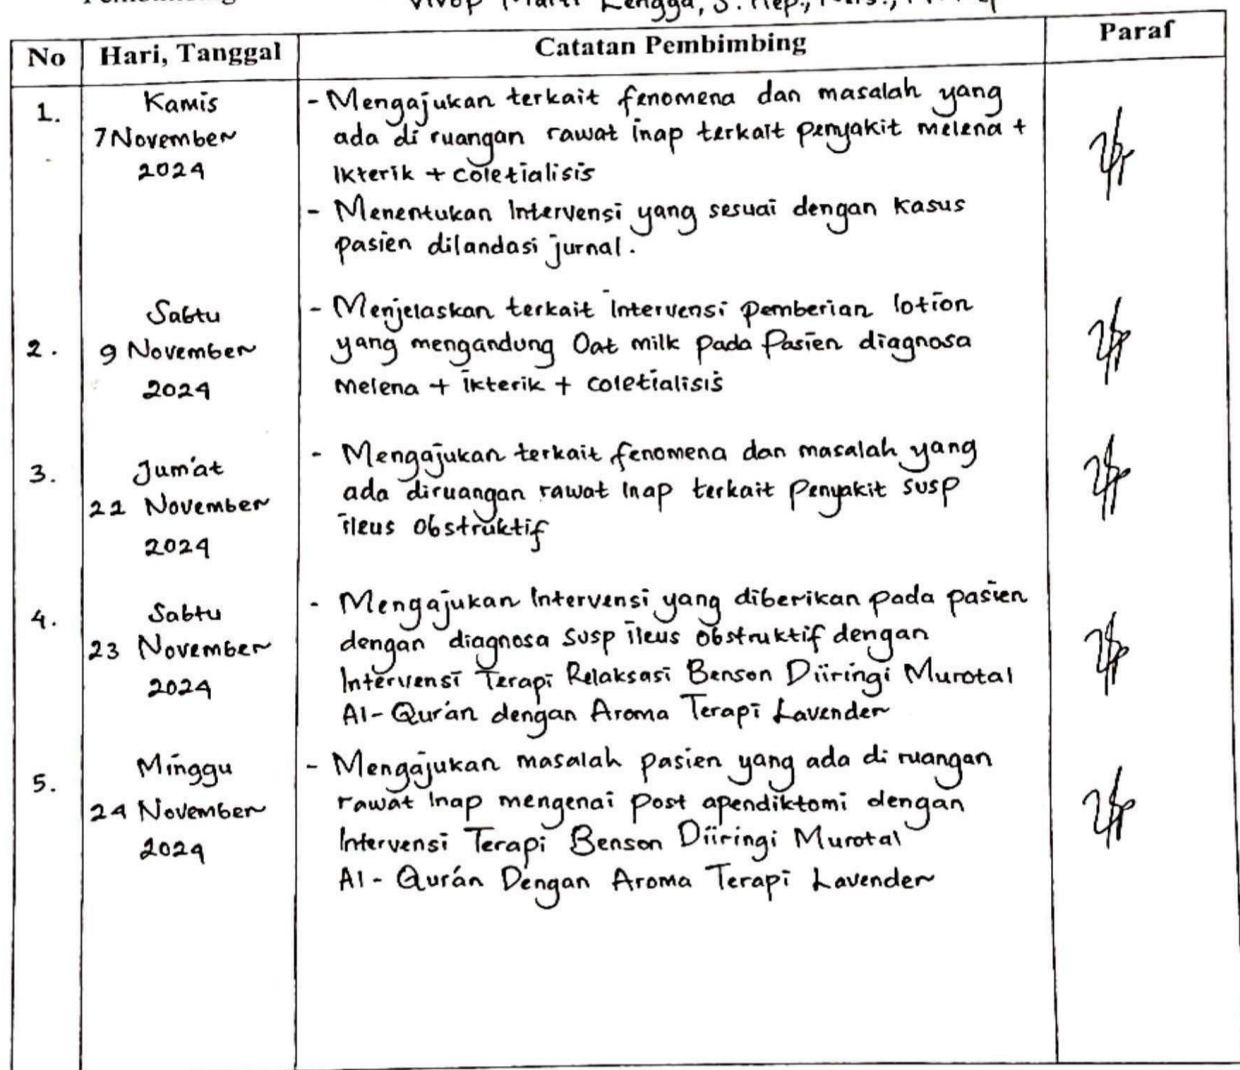 Vivop Marti Lengga, S. Kep.,
No Hari, Tanggal Catatan Pembimbing Paraf
1. Kamis
7 November
2024
- Mengajukan terkait fenomena dan masalah yang
ada di ruangan rawat inap terkait penyakit melena +
Ikterik + coletialisis
- Menentukan Intervensi yang sesuai dengan kasus
pasien dilandasi jurnal.
2. Sabtu
9 November
2024
- Menjelaskan terkait Intervensi pemberian lotion
yang mengandung Oat milk pada Pasien diagnosa
Melena + ikterik + coletialisis
3. Jum'at
22 November
2024
- Mengajukan terkait fenomena dan masalah yang
ada diruangan rawat inap terkait Penyakit susp
ileus obstruktif
4. Sabtu
23 November
2024
- Mengajukan Intervensi yang diberikan pada pasien
dengan diagnosa Susp ileus obstruktif dengan
Intervensi Terapi Relaksasi Benson Diiringi Murotal
Al-Qur'an dengan Aroma Terapi Lavender
5. Minggu
24 November
2024
- Mengajukan masalah pasien yang ada di ruangan
rawat inap mengenai post apendiktomi dengan
Intervensi Terapi Benson Diiringi Murotal
Al-Qur'an Dengan Aroma Terapi Lavender